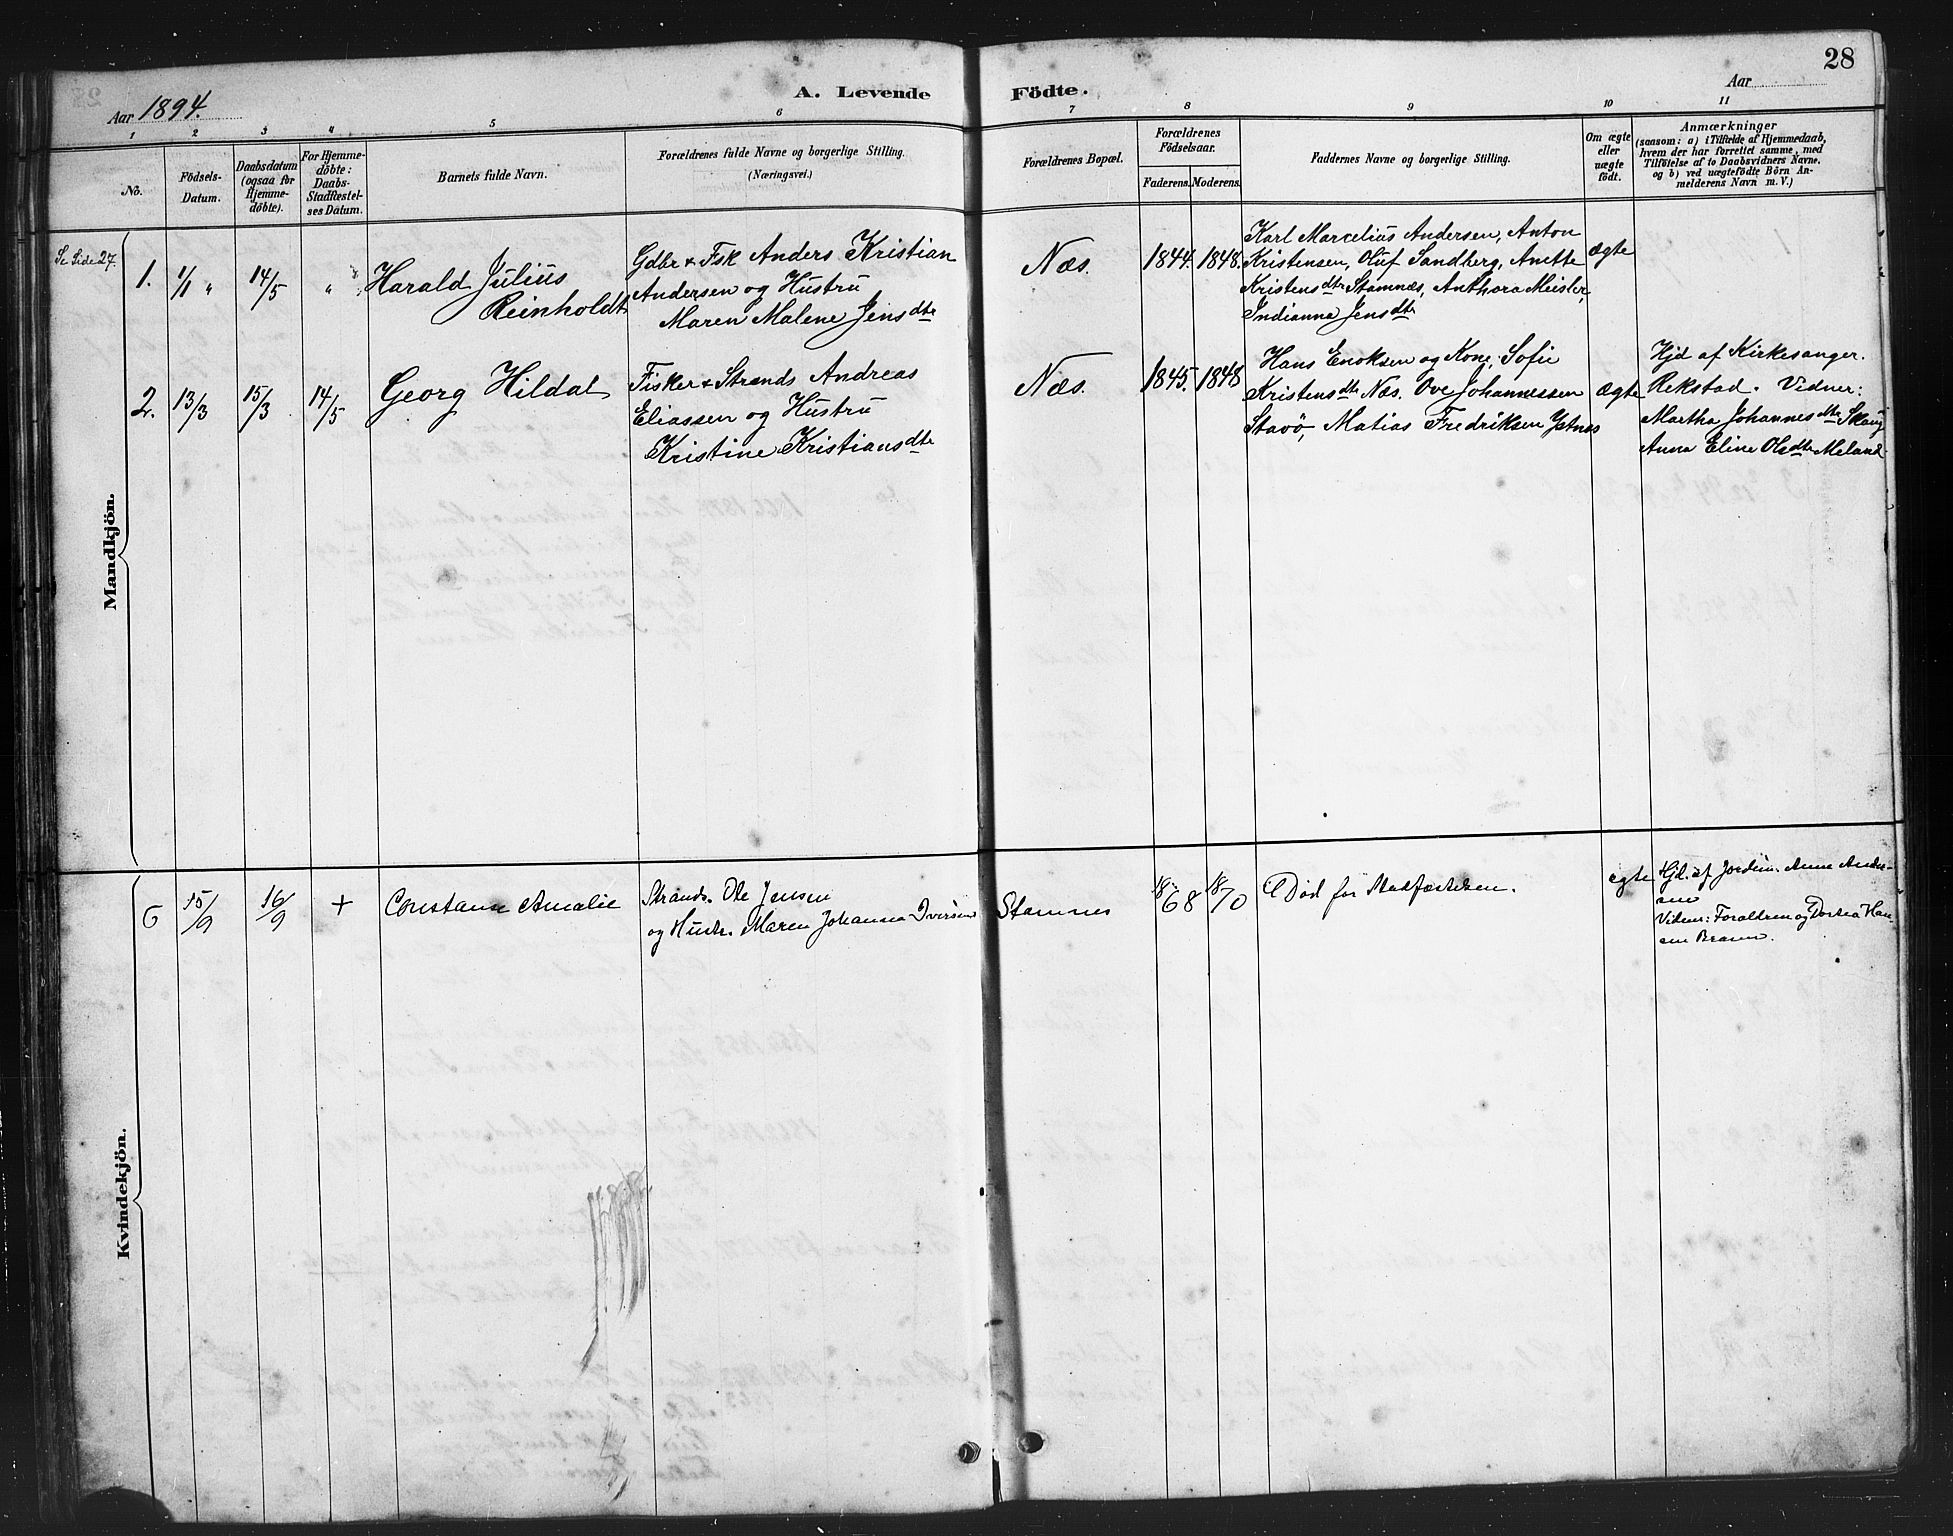 28
Aar 1894.
A. Levende Födte.
Aar
1 2 3 4 5 6 7 8 9 10 11
No.
Födsels-
Datum.
Daabsdatum
(ogsaa for
Hjemme-
døbte).
For Hjemme-
døbte:
Daabs-
Stadfæstel-
ses Datum.
Barnets fulde Navn.
Forældrenes fulde Navne og borgerlige Stilling.
(Næringsvei.)
Forældrenes Bopæl.
Forældrenes
Födselsaar.
Faderens. Moderens.
Faddernes Navne og borgerlige Stilling.
Om ægte
eller
uægte
født.
Anmærkninger
(saasom: a) i Tilfælde af Hjemmedaab,
hvem der har forrettet samme, med
Tilföielse af to Daabsvidners Navne.
og b) ved uægtefödte Börn An-
melderens Navn m. V.)
Mandkjön.
Se Side 27.
1. 1/1 " 14/5 "
Harald Julius
Reinholdt
Gdbr & Fsk Anders Kristian
Andersen og Hustru
Maren Malene Jensdtr
Næs. 1844. 1848.
Karl Marcelius Andersen, Anton
Kristensen, Oluf Sandberg, Anette
Kristensdtr Stamnæs, Anthora Meisler,
Indianna Jensdtr
ægte
2. 13/3 15/3 14/5
Georg Hildal
Fisker & Strands Andreas
Eliassen og Hustru
Kristine Kristiansdtr
Næs. 1845. 1848
Hans Enoksen og Kone, Sofie
Kristensdtr Næs. Ove Johannessen
Stavø, Matias Fredriksen Ystnes
ægte
Hjd af Kirkesanger.
Rekstad. Vidner:
Martha Johannesdtr Skaug
Anna Eline Olsdtr Meland
Kvindekjön.
6 15/9 16/9 +
Constanse Amalie
Strands. Ole Jensen
og Hustr. Maren Johanna Iversen
Stamnes 1868 1870
Død før Stadfæstelsen.
egte
Hjd. af Jordm. Anne Ander-
sen
Vidner: Forældrene og Dortea Han-
sen Brasen.